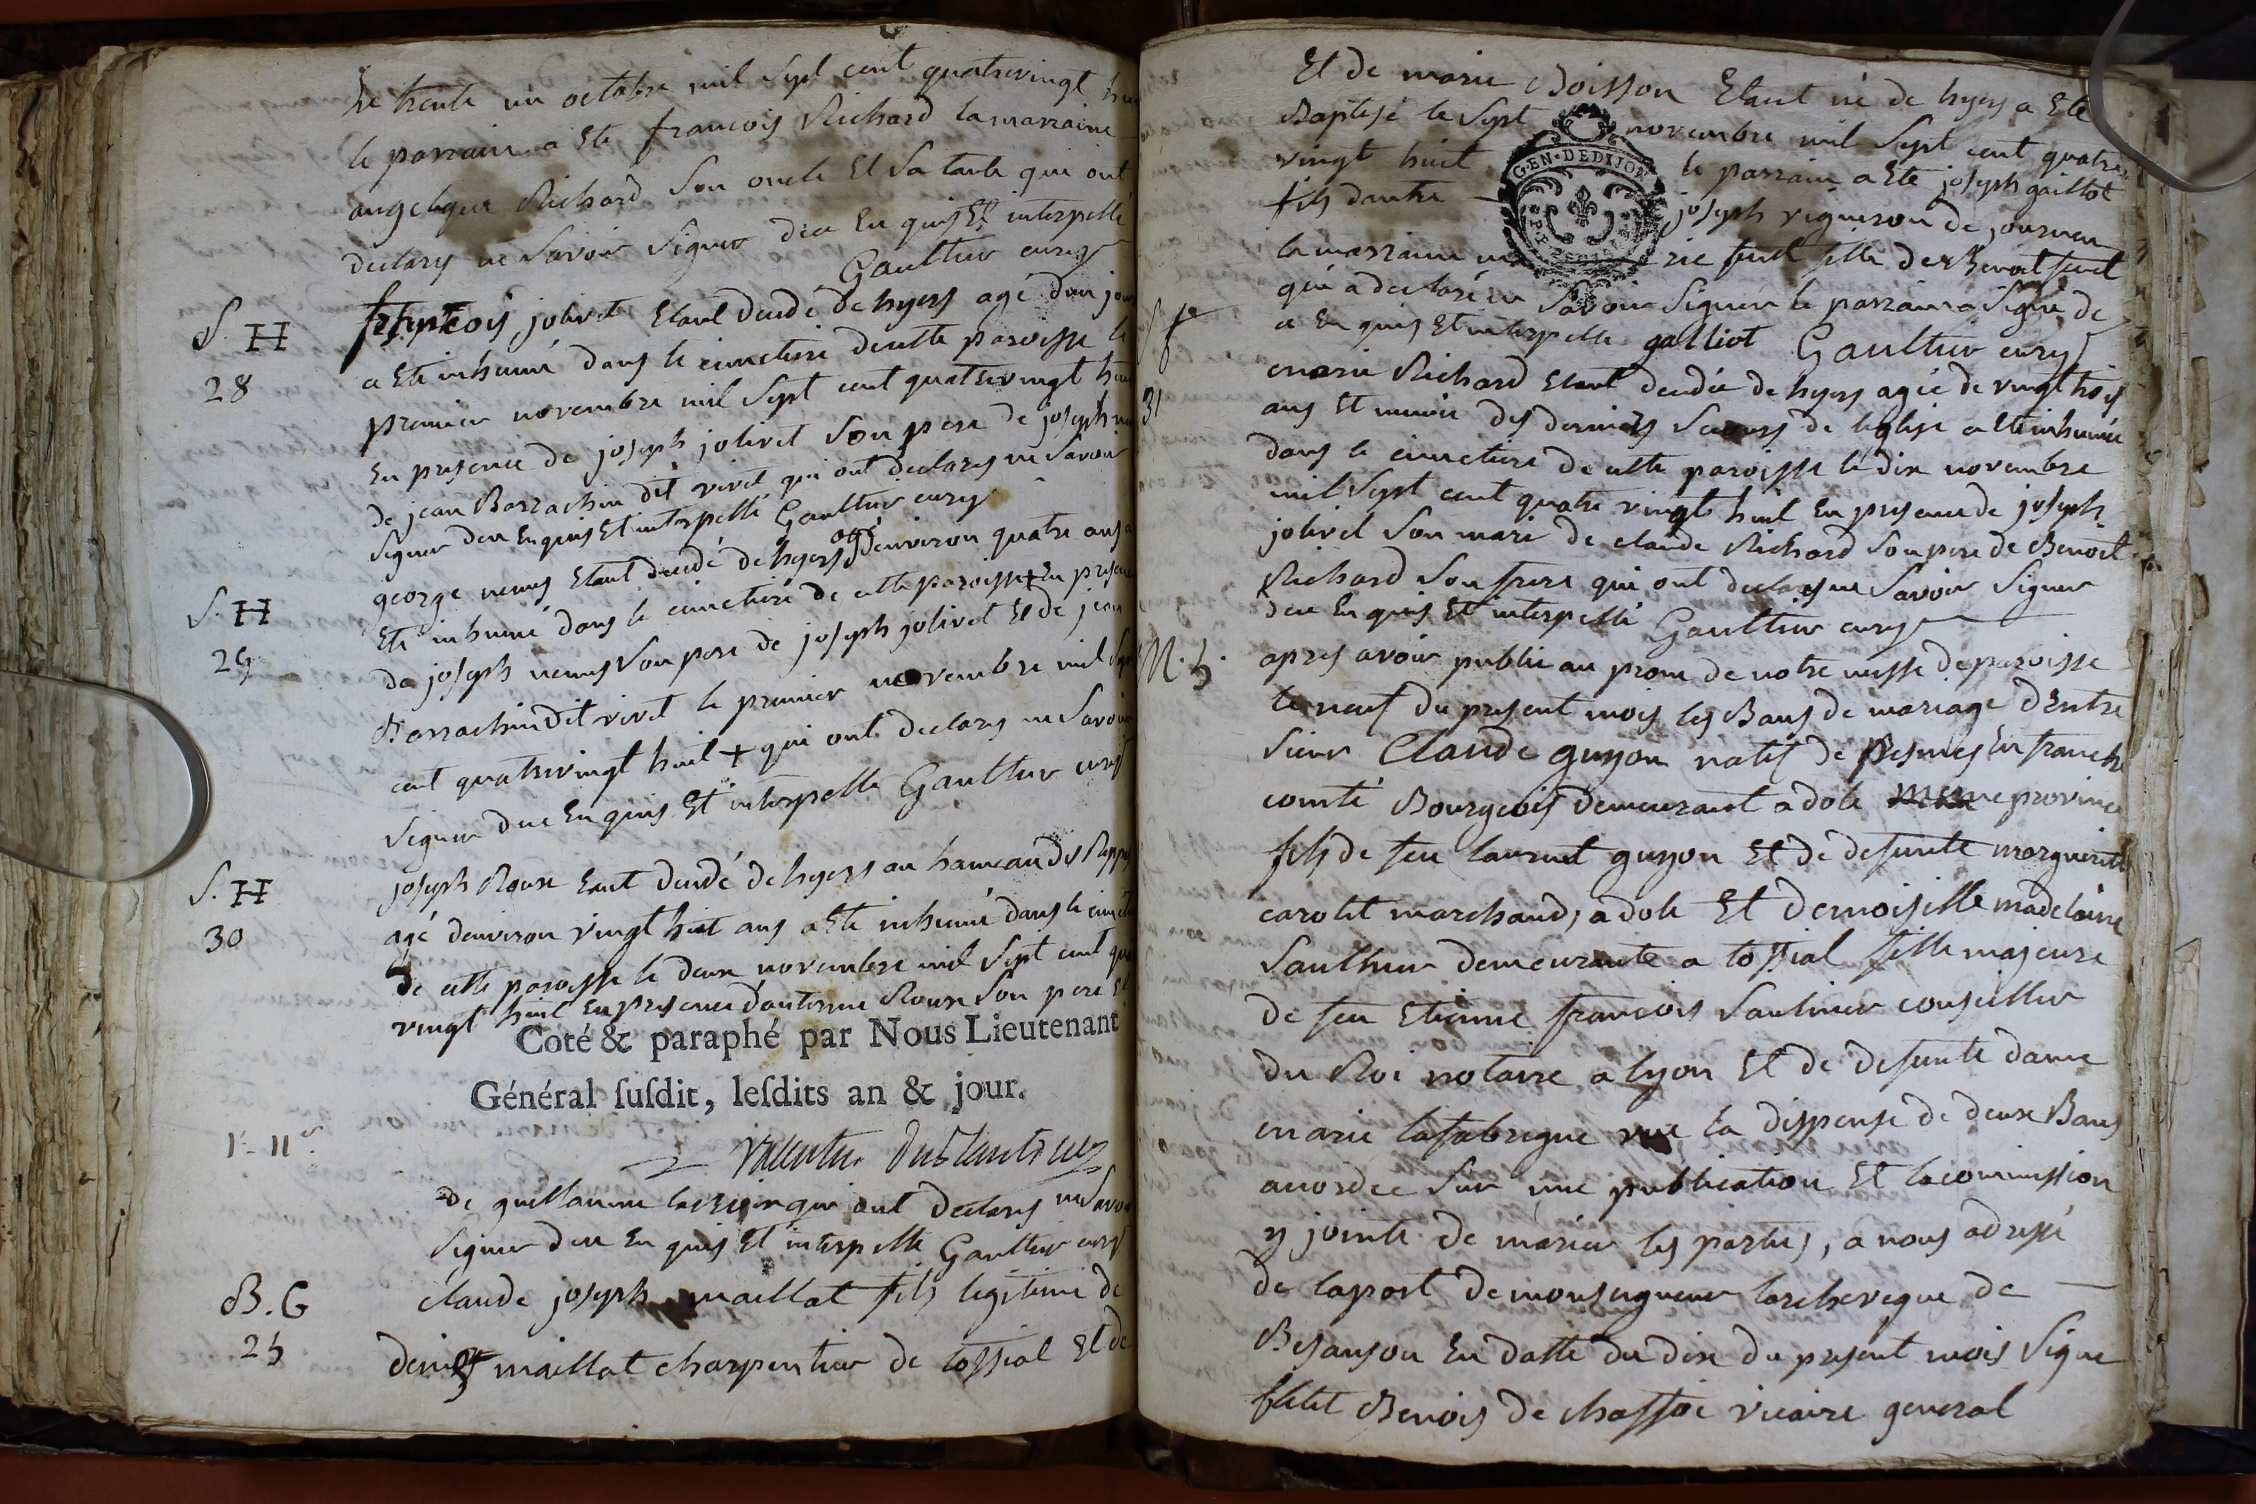 le trente un octobre mil sept cent quatrevingt
le parrain a Ete francois Richard la marraine
angelique Richard son oncle Et sa tante qui ont
declarés ne savoir signer deu Enquis Et interpellé
Gaultier curé
S. H
28
francois jolivet Etant decedé de hyers agé d'un jour
a Eté inhumé dans le cimetiere de cette paroisse le
premier novembre mil sept cent quatrevingt huit
En presence de joseph jolivet son pere de joseph
de jean Barrachin dit vivet qui ont declarés ne savoir
signer deu Enquis Et interpellé Gaultier curé
S. H
29
george Etant decedé de hyers agé denviron quatre ans a
Eté inhumé dans le cimetiere de cette paroisse + En presence
de joseph son pere de joseph jolivet Et de jean
Barrachin dit vivet le premier novembre mil sept
cent quatrevingt huit + qui ont declarés ne savoir
signer deu Enquis Et interpellé Gaultier curé
S. H
30
joseph Roux Etant decedé de hyers au hameau de
agé denviron vingt huit ans a Eté inhumé dans le cimetiere
de cette paroisse le deux novembre mil sept cent quatre
vingt huit En presence dantoine Roux son pere et
Coté & paraphé par Nous Lieutenant
Général ſuſdit, leſdits an & jour.
de guillaume qui ont declarés ne savoir
signer deu Enquis Et interpellé Gaultier curé
B. G
25
claude joseph maillat fils legitime de
denis maillat charpentier de tossial Et de
Et de marie Boisson Etant né de hyers a Eté
Baptisé le sept novembre mil sept cent quatre
vingt huit le parrain a Eté joseph gailliot
fils dautre joseph vigneron de journan
la marraine marie fille de Benoit
G·EN·DEDIJON
qui a declaré ne savoir signer le parrain a signé de
ce Enquis Et interpellé galliot Gaultier curé
31
marie Richard Etant decedée de hyers agée de vingt trois
ans Et munie des derniers secours de leglise a Eté inhumée
dans le cimetiere de cette paroisse le dix novembre
mil sept cent quatre vingt huit En presence de joseph
jolivet son mari de claude Richard son pere de Benoit
Richard son frere qui ont declarés ne savoir signer
deu Enquis Et interpellé Gaultier curé
M. 5.
apres avoir publié au prone de notre messe de paroisse
le neuf du present mois les Bans de mariage dEntre
sieur Claude guyon natif de pesmes En franche
comté Bourgeois demeurant a dole meme province
fils de feu laurent guyon Et de defunte marguerite
carolet marchands a dole Et demoiselle madelaine
Saulnier demeurante a tossial fille majeure
de feu Etienne francois Saulnier conseiller
du Roi notaire a lyon Et de defunte dame
marie lafabregue vue la dispense de deux Bans
accordée sur une publication Et la commission
y jointe de marier les parties, a nous adressé
de la part de monseigneur larcheveque de
Besançon En datte du dix du present mois signé
Benois de chassoi vicaire general